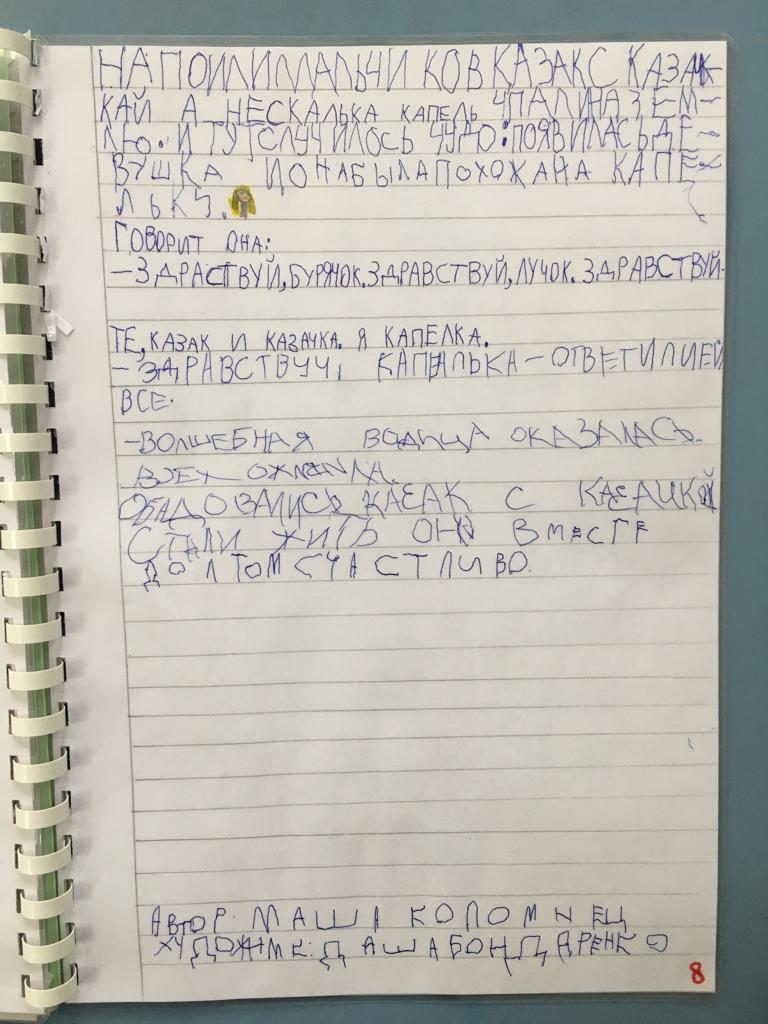 НАПОИЛИ МАЛЬЧИКОВ КАЗАК С КАЗАЧ-
КАЙ А НЕСКАЛЬКА КАПЕЛЬ УПАЛИ НА ЗЕМ-
ЛЮ. И ТУТ СЛУЧИЛОСЬ ЧУДО: ПОЯВИЛАСЬ ДЕ-
ВУШКА И ОНА БЫЛА ПОХОЖА НА КАПЕ-
ЛЬКУ.
ГОВОРИТ ОНА:
-ЗДРАСТВУЙ, БУРЯЧОК. ЗДРАВСТВУЙ, ЛУЧОК. ЗДРАВСТВУЙ-
ТЕ, КАЗАК И КАЗАЧКА. Я КАПЕЛКА.
-ЗДРАВСТВУЧ, КАПЕЛЬКА - ОТВЕТИЛИ ЕЙ
ВСЕ.
-ВОЛШЕБНАЯ ВОДИЦА ОКАЗАЛАСЬ.
ВСЕХ
КАЗАК С КАЗАЧКОЙ
СТАЛИ ЖИТЬ ОНИ ВМЕСТЕ
СЧАСТЛИВО.
АВТОР: МАША КОЛОМИЕЦ
ХУДОЖНИК: ДАША БОНДАРЕНКО
8